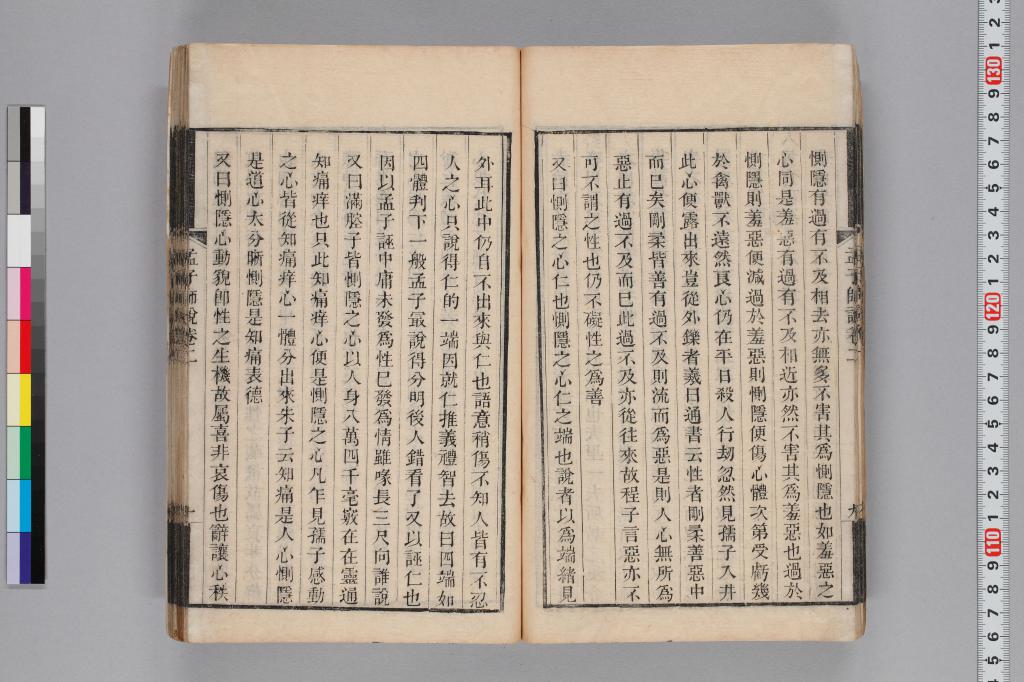 惻隱有過有不及相去亦無多不害其爲惻隱也如羞惡之
心同是羞惡有過有不及相近亦然不害其爲羞惡也過於
惻隱則羞惡便減過於羞惡則惻隱便傷心體次第受虧幾
於禽獸不遠然良心仍在平日殺人行刼忽然見孺子入井
此心便露出來豈從外鑠者羲曰通書云性者剛柔善惡中
而已矣剛柔皆善有過不及則流而爲惡是則人心無所爲
惡止有過不及而已此過不及亦從往來故程子言惡亦不
可不謂之性也仍不礙性之爲善
又曰惻隱之心仁也惻隱之心仁之端也說者以爲端緒見
孟子師說卷二
九
外耳此中仍自不出來與仁也語意稍傷不知人皆有不忍
人之心只說得仁的一端因就仁推義禮智去故曰四端如
四體判下一般孟子最說得分明後人錯看了又以誣仁也
因以孟子誣中庸未發爲性已發爲情雖喙長三尺向誰說
又曰滿腔子皆惻隱之心以人身八萬四千毫竅在在靈通
知痛痒也只此知痛痒心便是惻隱之心凡乍見孺子感動
之心皆從知痛痒心一體分出來朱子云知痛是人心惻隱
是道心太分晰惻隱是知痛表德
又曰惻隱心動貌卽性之生機故屬喜非哀傷也辭讓心秩
孟子師說卷二
十
110
120
130